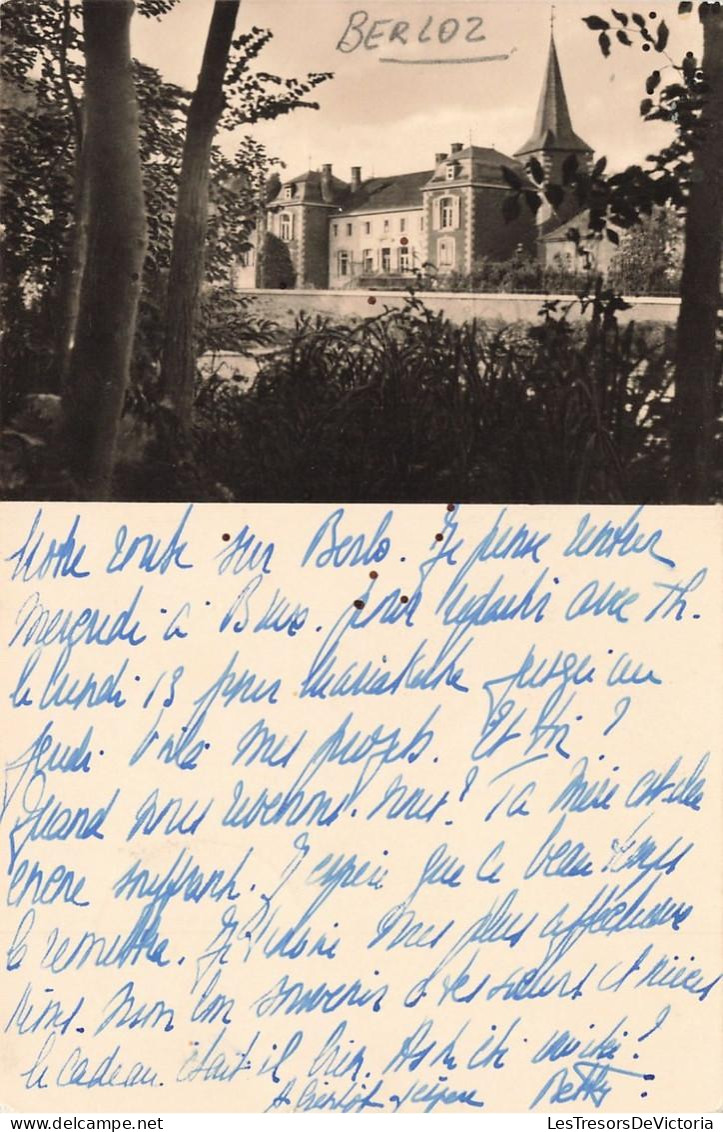 BERLOZ
Notre route sur Berlo. Je pense rentrer
Mercredi à Brux. pour repartir avec Th.
le lundi 13 pour Mariakerke jusqu'au
jeudi. Voilà mes projets. Et toi?
Quand nous reverrons-nous? Ta Mère est-elle
encore souffrante. J'espère que ce beau temps
la remettra. Je te donne mes plus affectueux
Mon bon souvenir à tes soeurs et nièces
le cadeau était il bien. As-tu été invitée?
A bientôt j'espère Betty.
LesTresorsDeVictoria